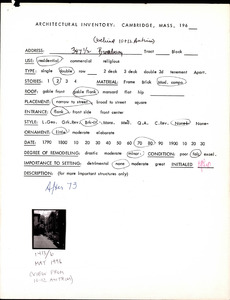 ARCHITECTURAL INVENTORY: CAMBRIDGE, MASS., 196
(behind 10-12 Antrim)
ADDRESS: Broadway Tract Block
USE: residential commercial religious
TYPE: single double row 2 deck 3 deck double 3d tenement Apart.
STORIES: 1 2 3 4 MATERIAL: Frame Brick stud. comps.
ROOF: gable front gable flank mansard flat hip
PLACEMENT: narrow to street broad to street square
ENTRANCE: flank front side front center
STYLE: L.Geo. Gk.Rev. Brkt. Mans. Med. Q.A. C.Rev. None
ORNAMENT: little moderate elaborate
DATE: 1790 1800 10 20 30 40 50 60 70 80 90 1900 10 20 30
DEGREE OF REMODELING: drastic moderate minor CONDITION: poor fair excel.
IMPORTANCE TO SETTING: detrimental none moderate great INITIALED
DESCRIPTION: (for more important structures only)
After 73
MAY 1996
10-12 ANTRIM